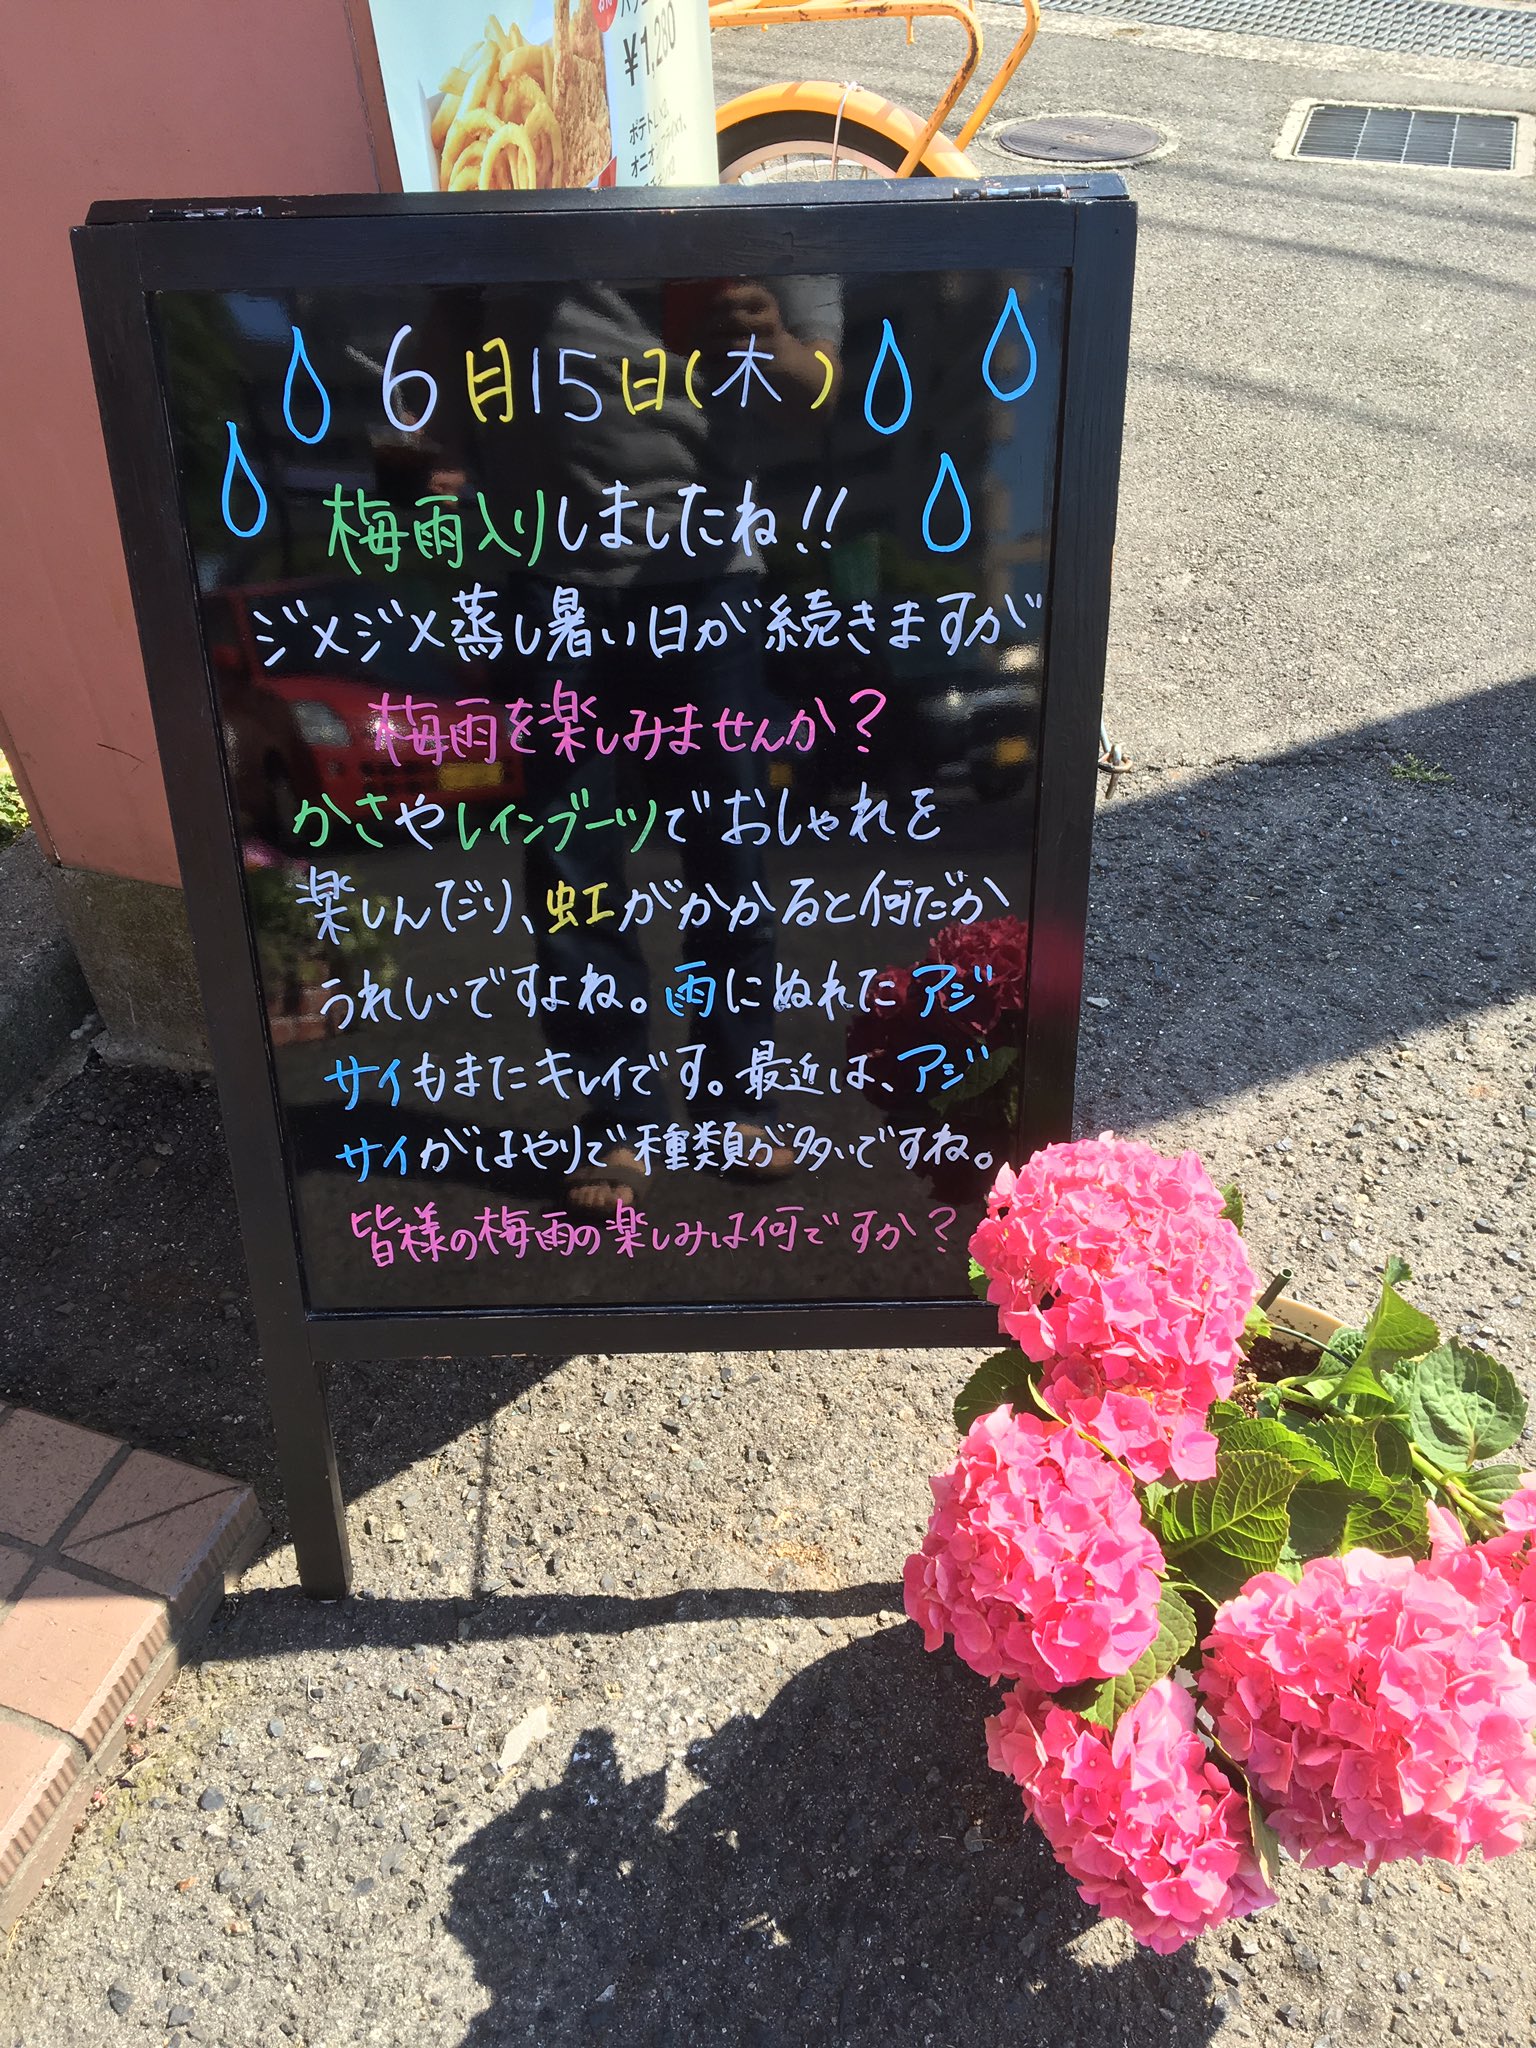 ¥1,280
ポテトL×2、
6月15日(木)
梅雨入りしましたね!!
ジメジメ蒸し暑い日が続きますが
梅雨を楽しみませんか?
かさやレインブーツでおしゃれを
楽しんだり、虹がかかると何だか
うれしいですよね。雨にぬれたアジ
サイもまたキレイです。最近は、アジ
サイがはやりで種類が多いですね。
皆様の梅雨の楽しみは何ですか?